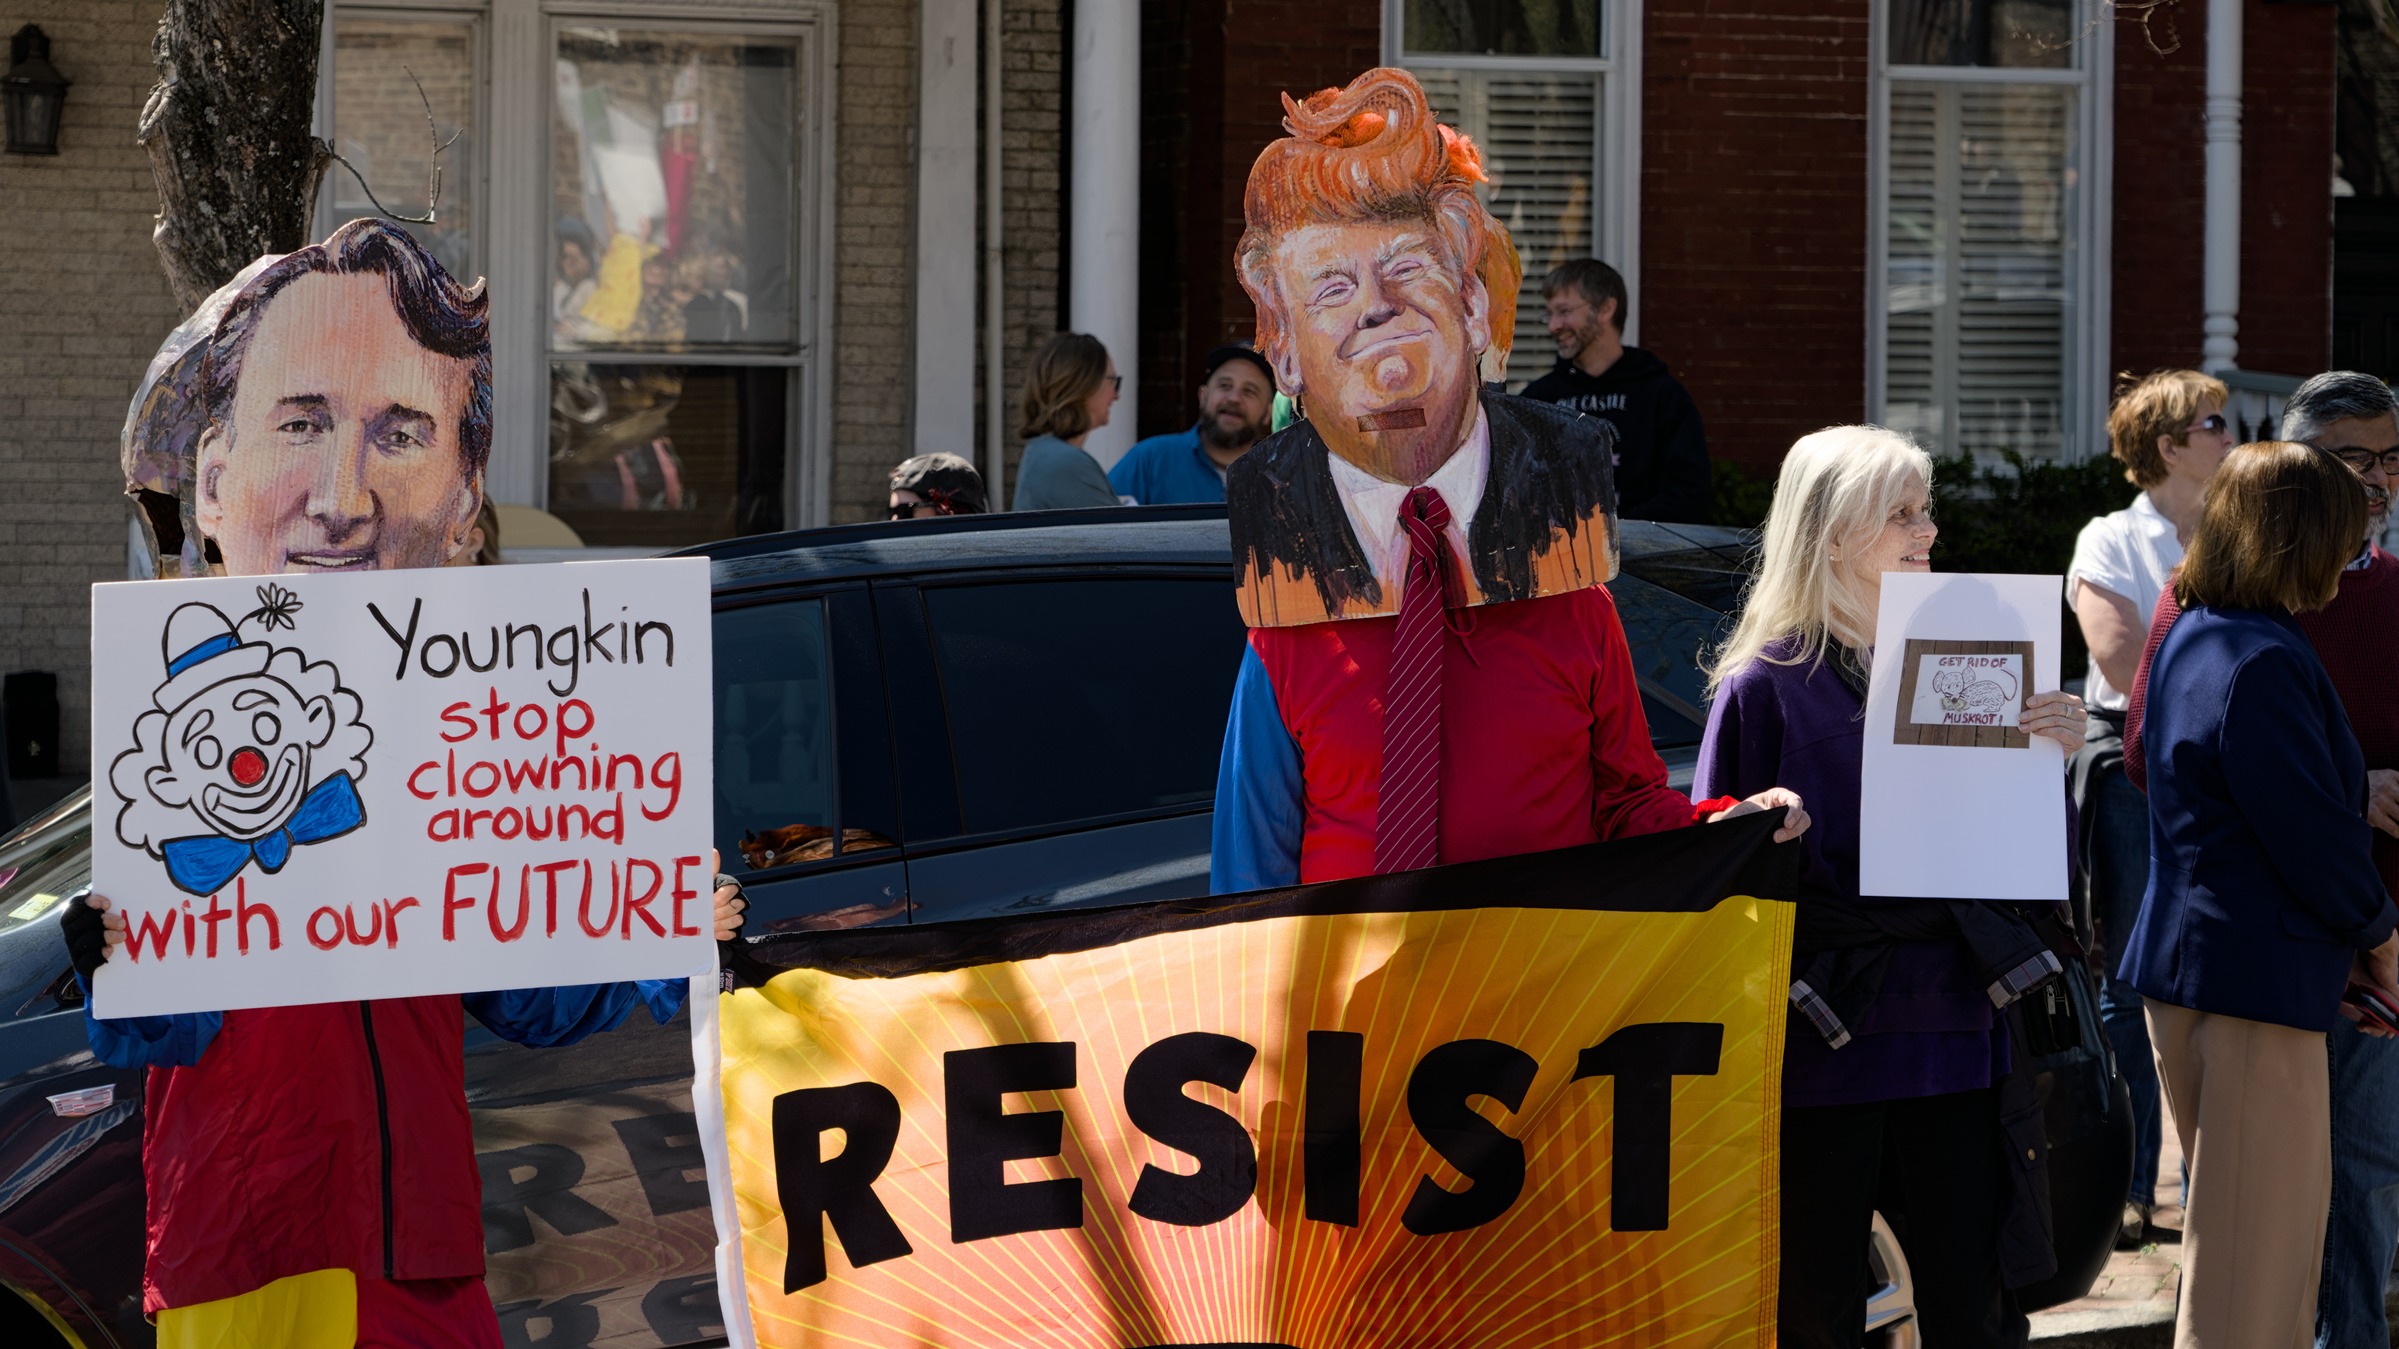 Youngkin
stop
clowning
around
with our FUTURE
RESIST
GET RID OF
MUSKROT!